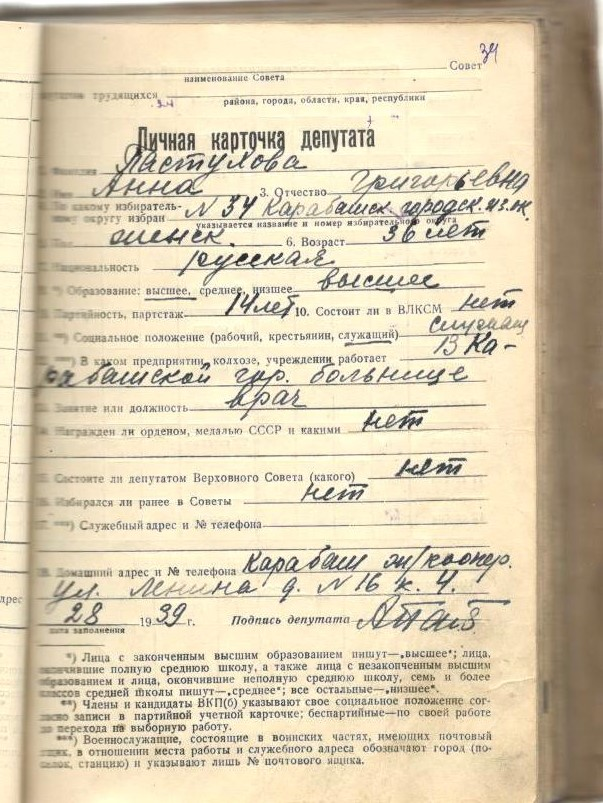 34
Совет
наименование Совета
трудящихся
района, города, области, края, республики
Личная карточка депутата
Пастухова
Анна 3. Отчество Григорьевна
По какому избиратель-
ному округу избран N 34 Карабашск. городск.
указывается название и номер избирательного округа
женск. 6. Возраст 36 лет
Национальность русская
*) Образование: высшее, среднее, низшее высшее
Партийность, партстаж 14 лет 10. Состоит ли в ВЛКСМ нет
**) Социальное положение (рабочий, крестьянин, служащий) служащ
***) В каком предприятии, колхозе, учреждении работает В Ка-
рабашской гор. больнице
Занятие или должность врач
Награжден ли орденом, медалью СССР и какими нет
Состоите ли депутатом Верховного Совета (какого) нет
Избирался ли ранее в Советы нет
***) Служебный адрес и № телефона
Домашний адрес и № телефона Карабаш ж/коопер.
ул. Ленина д. N 16 к. 4.
28 1939 г. Подпись депутата
дата заполнения
*) Лица с законченным высшим образованием пишут—„высшее“; лица,
окончившие полную среднюю школу, а также лица с незаконченным высшим
образованием и лица, окончившие неполную среднюю школу, семь и более
классов средней школы пишут—„среднее“; все остальные—„низшее“.
**) Члены и кандидаты ВКП(б) указывают свое социальное положение сог-
ласно записи в партийной учетной карточке; беспартийные—по своей работе
до перехода на выборную работу.
***) Военнослужащие, состоящие в воинских частях, имеющих почтовый
ящик, в отношении места работы и служебного адреса обозначают город (по-
селок, станцию) и указывают лишь № почтового ящика.